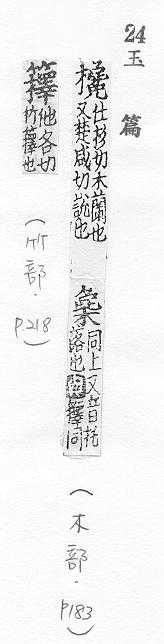 24
玉篇
仕杉切木蘭也
又楚咸切
同上又昔托
落也 籜同
(木部・p183)
籜 他各切
竹籜也
(竹部・p218)